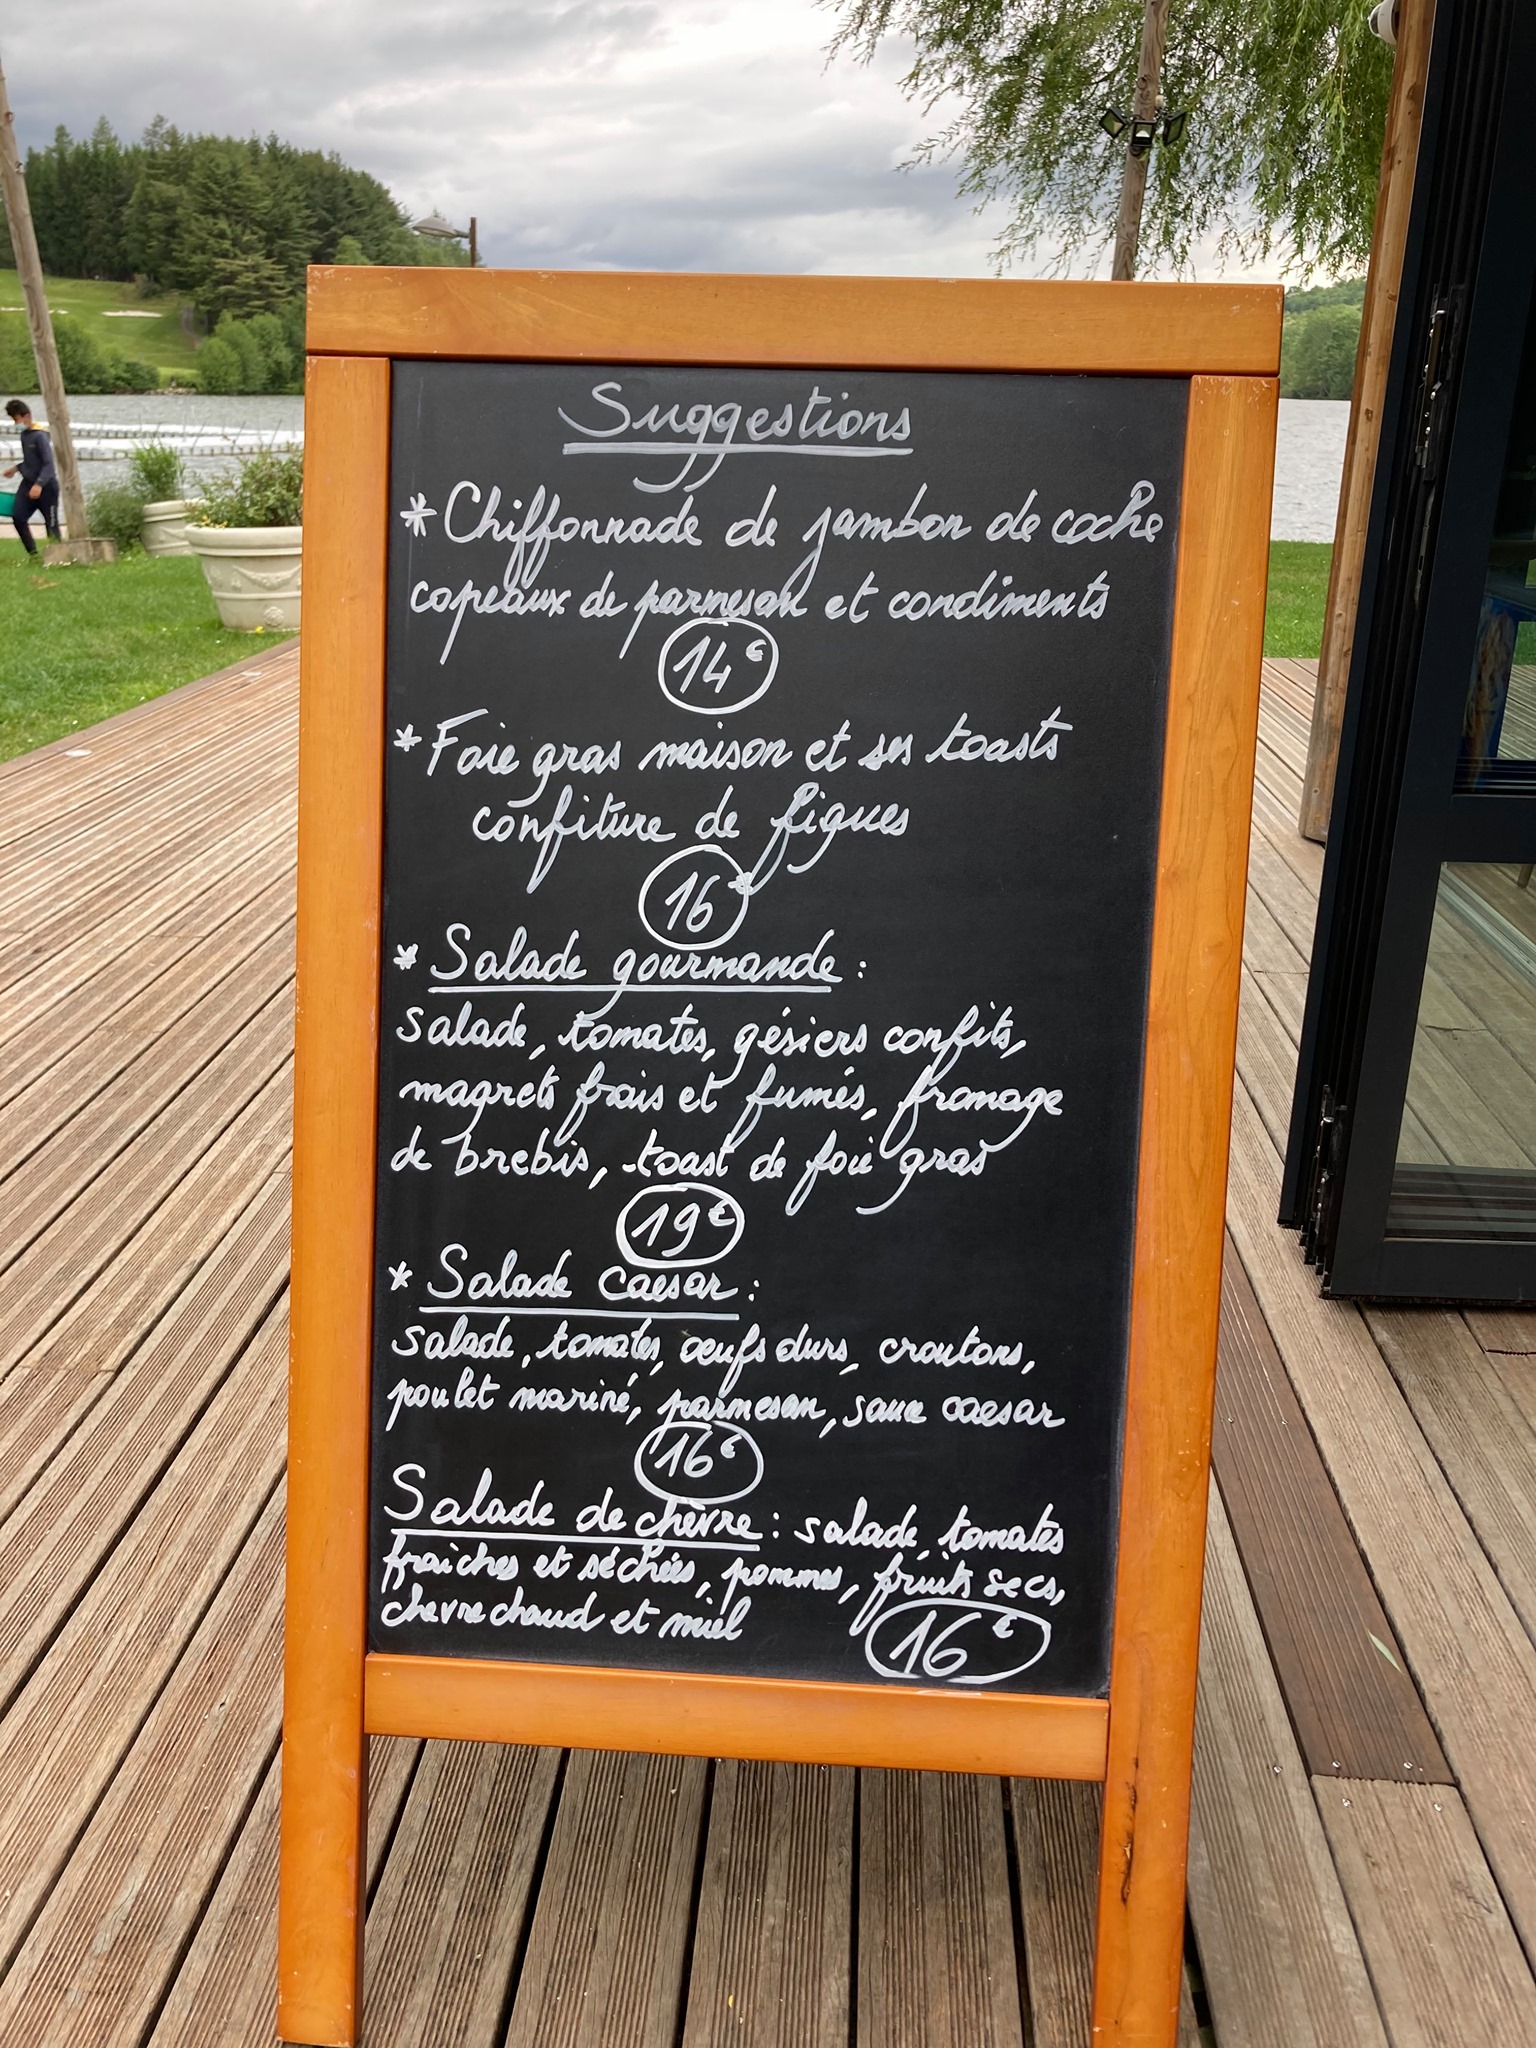 Suggestions
* Chiffonnade de jambon de coche
copeaux de parmesan et condiments
14€
* Foie gras maison et ses toasts
confiture de figues
16€
* Salade gourmande :
salade, tomates, gésiers confits,
magrets frais et fumés, fromage
de brebis, toast de foie gras
19€
* Salade caesar :
salade, tomates, oeufs durs, croutons,
poulet mariné, parmesan, sauce caesar
16€
Salade de chèvre : salade, tomates
fraiches et séchées, pommes, fruits secs,
chevre chaud et miel
16€